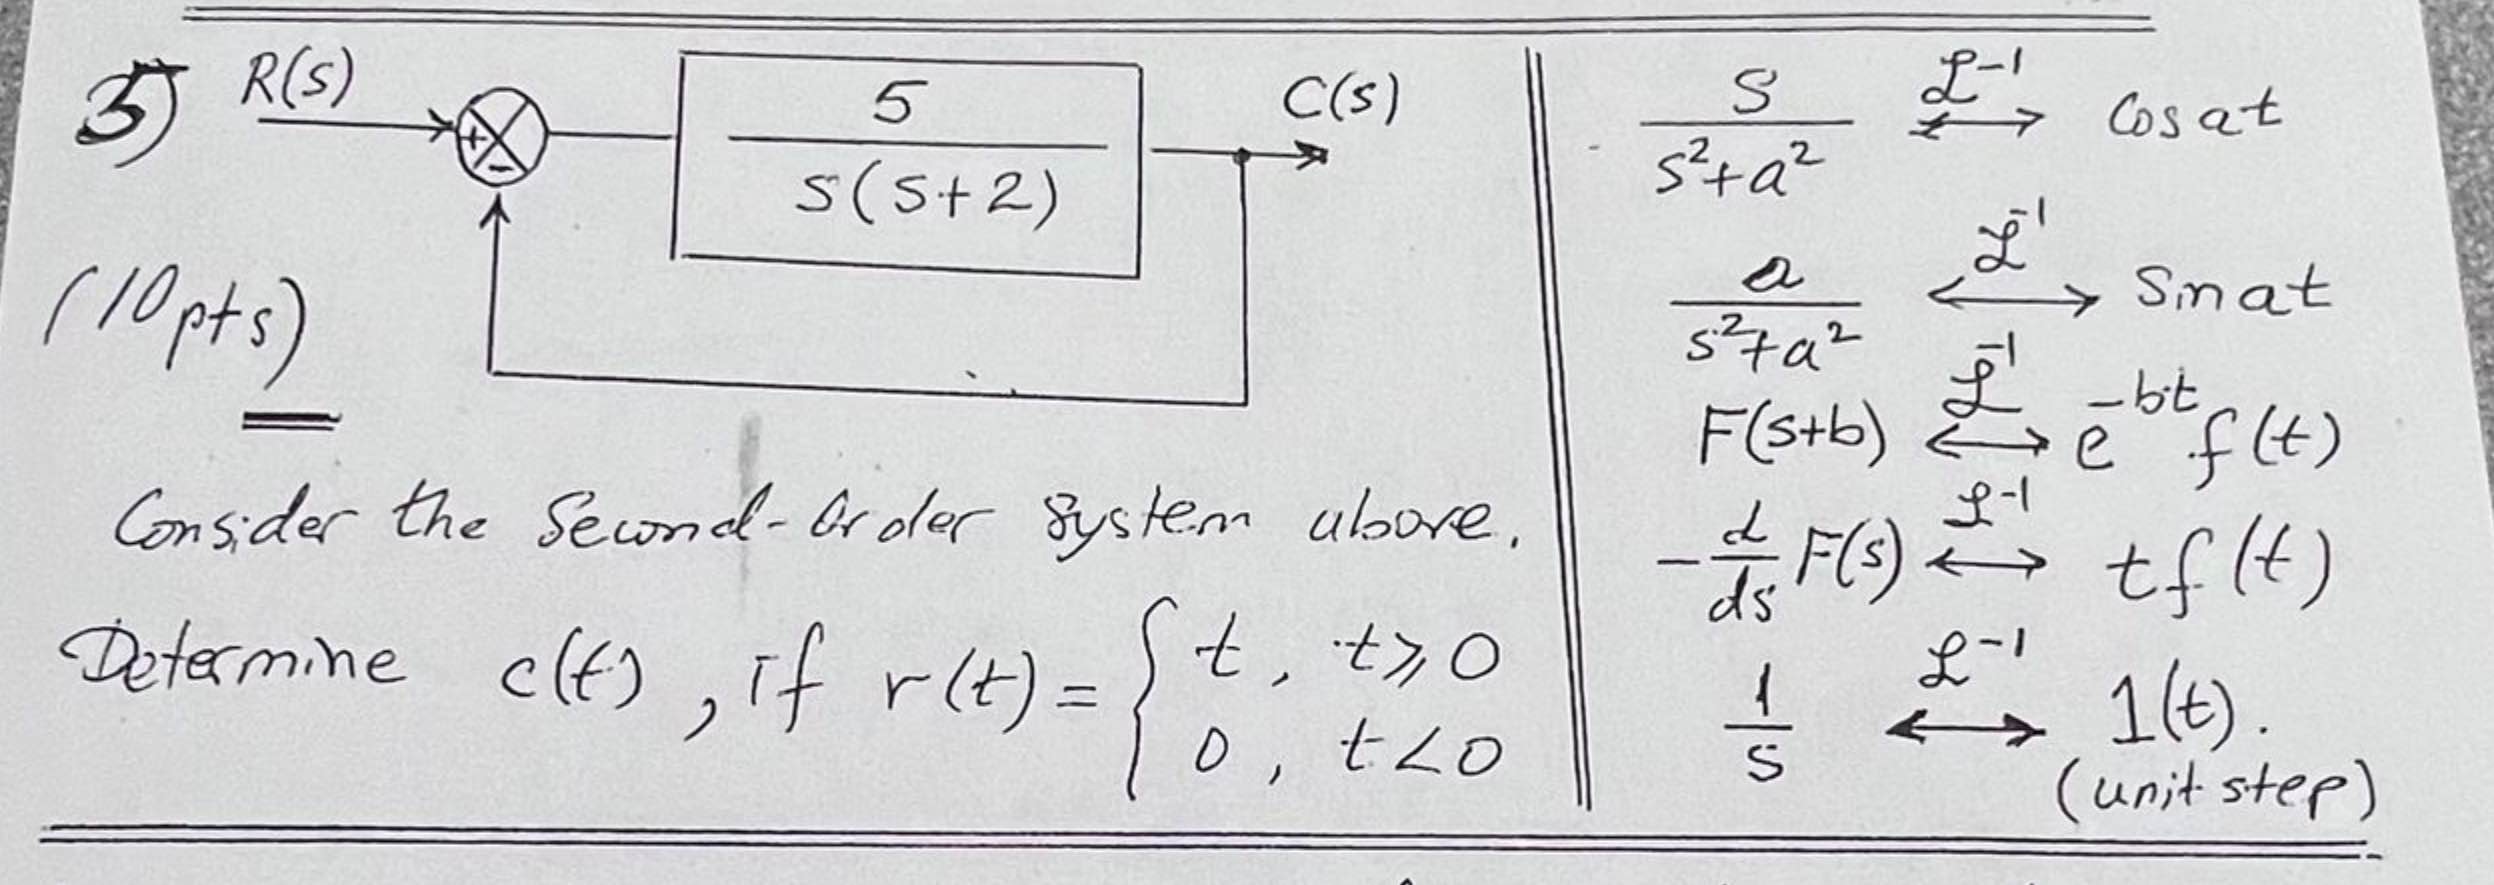 3)
R(s)
+
-
5
s(s+2)
C(s)
(10pts)
Consider the Second-Order System above.
Determine c(t), if r(t) = { t, t⩾0
0, t<0
s/(s²+a²) ℒ⁻¹ ↔ Cos at
a/(s²+a²) ℒ⁻¹ ↔ Sin at
F(s+b) ℒ⁻¹ ↔ e^-bt f(t)
-d/ds F(s) ℒ⁻¹ ↔ t f(t)
1/s ℒ⁻¹ ↔ 1(t).
(unit step)